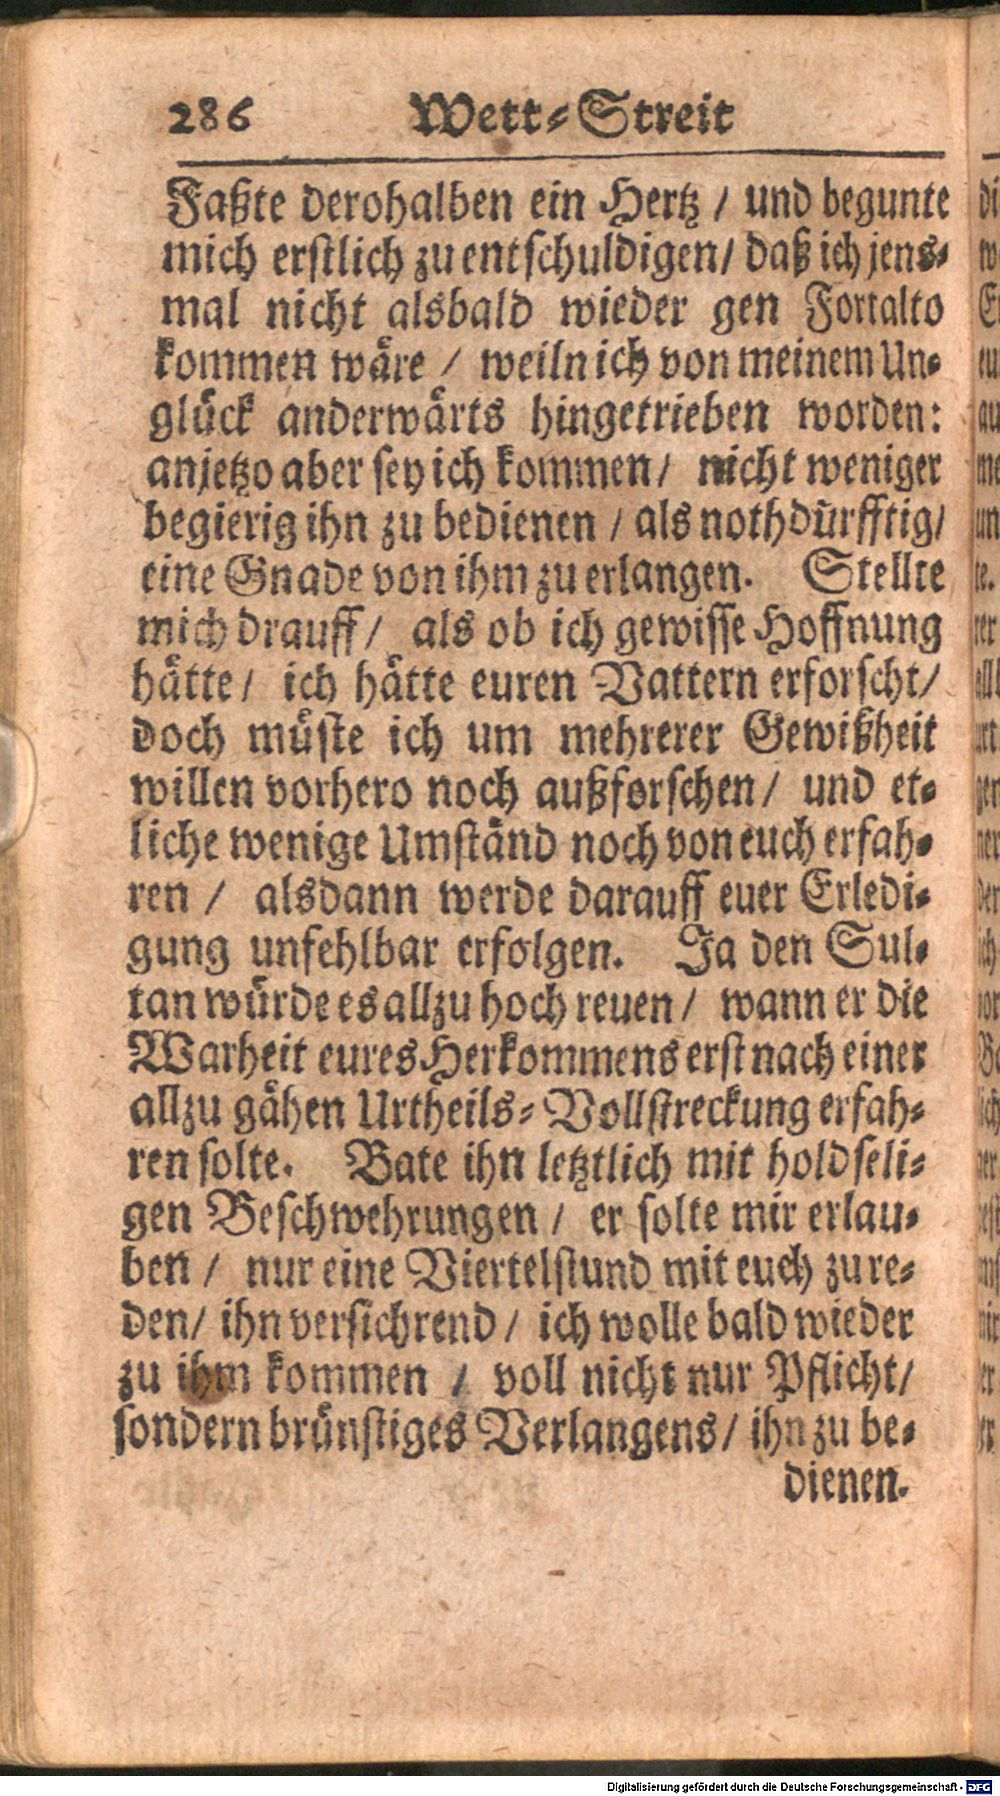 286 Wett-Streit
Faßte derohalben ein Hertz / und begunte
mich erstlich zu entschuldigen / daß ich jens-
mal nicht alsbald wieder gen Fortalto
kommen wäre / weiln ich von meinem Un-
glück anderwärts hingetrieben worden:
anjetzo aber sey ich kommen / nicht weniger
begierig ihn zu bedienen / als nothdürfftig /
eine Gnade von ihm zu erlangen. Stellte
mich drauff / als ob ich gewisse Hoffnung
hätte / ich hätte euren Vattern erforscht /
doch müste ich um mehrerer Gewißheit
willen vorhero noch außforschen / und et-
liche wenige Umständ noch von euch erfah-
ren / alsdann werde darauff euer Erledi-
gung unfehlbar erfolgen. Ja den Sul-
tan würde es allzu hoch reuen / wann er die
Warheit eures Herkommens erst nach einer
allzu gähen Urtheils-Vollstreckung erfah-
ren solte. Bate ihn letztlich mit holdseli-
gen Beschwehrungen / er solte mir erlau-
ben / nur eine Viertelstund mit euch zu re-
den / ihn versichrend / ich wolle bald wieder
zu ihm kommen / voll nicht nur Pflicht /
sondern brünstiges Verlangens / ihn zu be-
dienen.
Digitalisierung gefördert durch die Deutsche Forschungsgemeinschaft - DFG